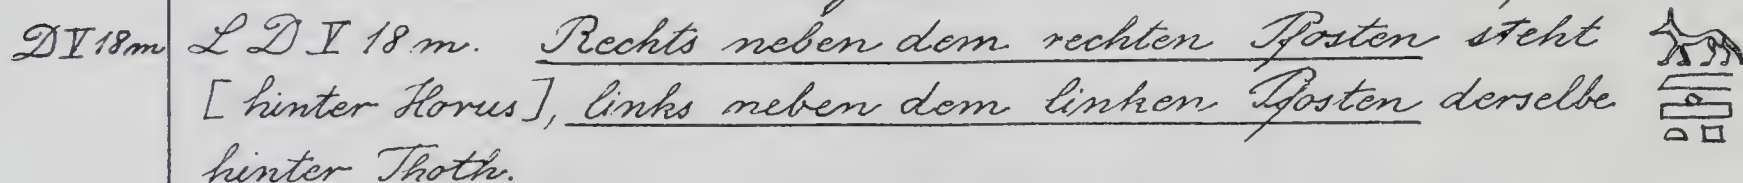 D V 18m L D V 18 m. Rechts neben dem rechten Pfosten steht
[hinter Horus], links neben dem linken Pfosten derselbe
hinter Thoth.